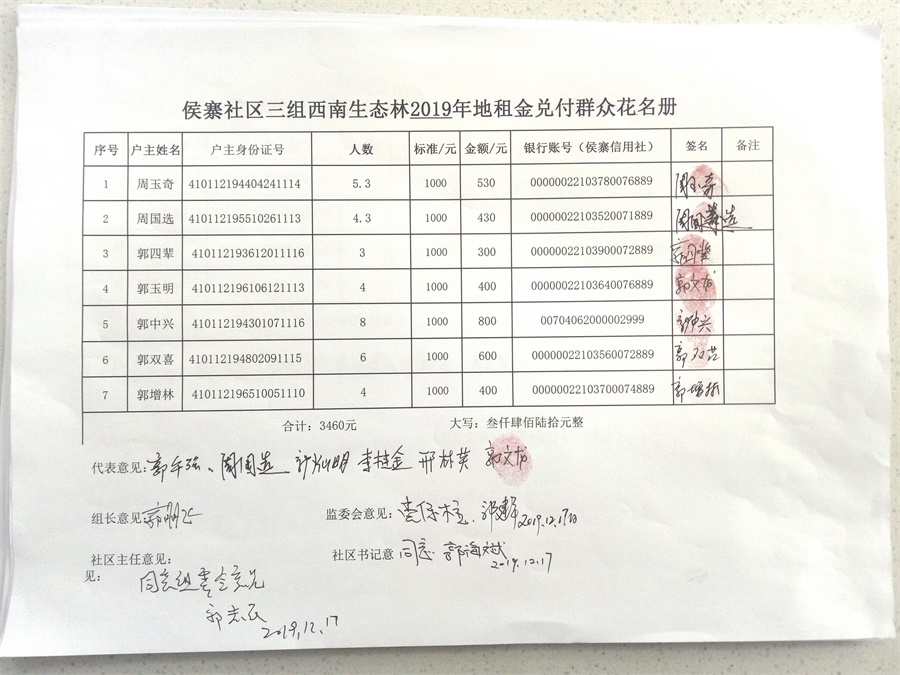 侯寨社区三组西南生态林2019年地租金兑付群众花名册
序号 户主姓名 户主身份证号 人数 标准/元 金额/元 银行账号（侯寨信用社） 签名 备注
1 周玉奇 410112194404241114 5.3 1000 530 00000022103780076889 周玉奇
2 周国选 410112195510261113 4.3 1000 430 00000022103520071889 周国选
3 郭四辈 410112193612011116 3 1000 300 00000022103900072889 郭四辈
4 郭玉明 410112196106121113 4 1000 400 00000022103640076889 郭文龙
5 郭中兴 410112194301071116 8 1000 800 00704062000002999 郭中兴
6 郭双喜 410112194802091115 6 1000 600 00000022103560072889 郭双喜
7 郭增林 410112196510051110 4 1000 400 00000022103700074889 郭增林
合计：3460元 大写：叁仟肆佰陆拾元整
代表意见： 周国选 李桂金 邢林英 郭文龙
组长意见 监委会意见： 2019.12.17日
社区主任意见： 社区书记意 同意 郭海斌
见： 2019.12.17
同意组委会意见
郭志民
2019.12.17